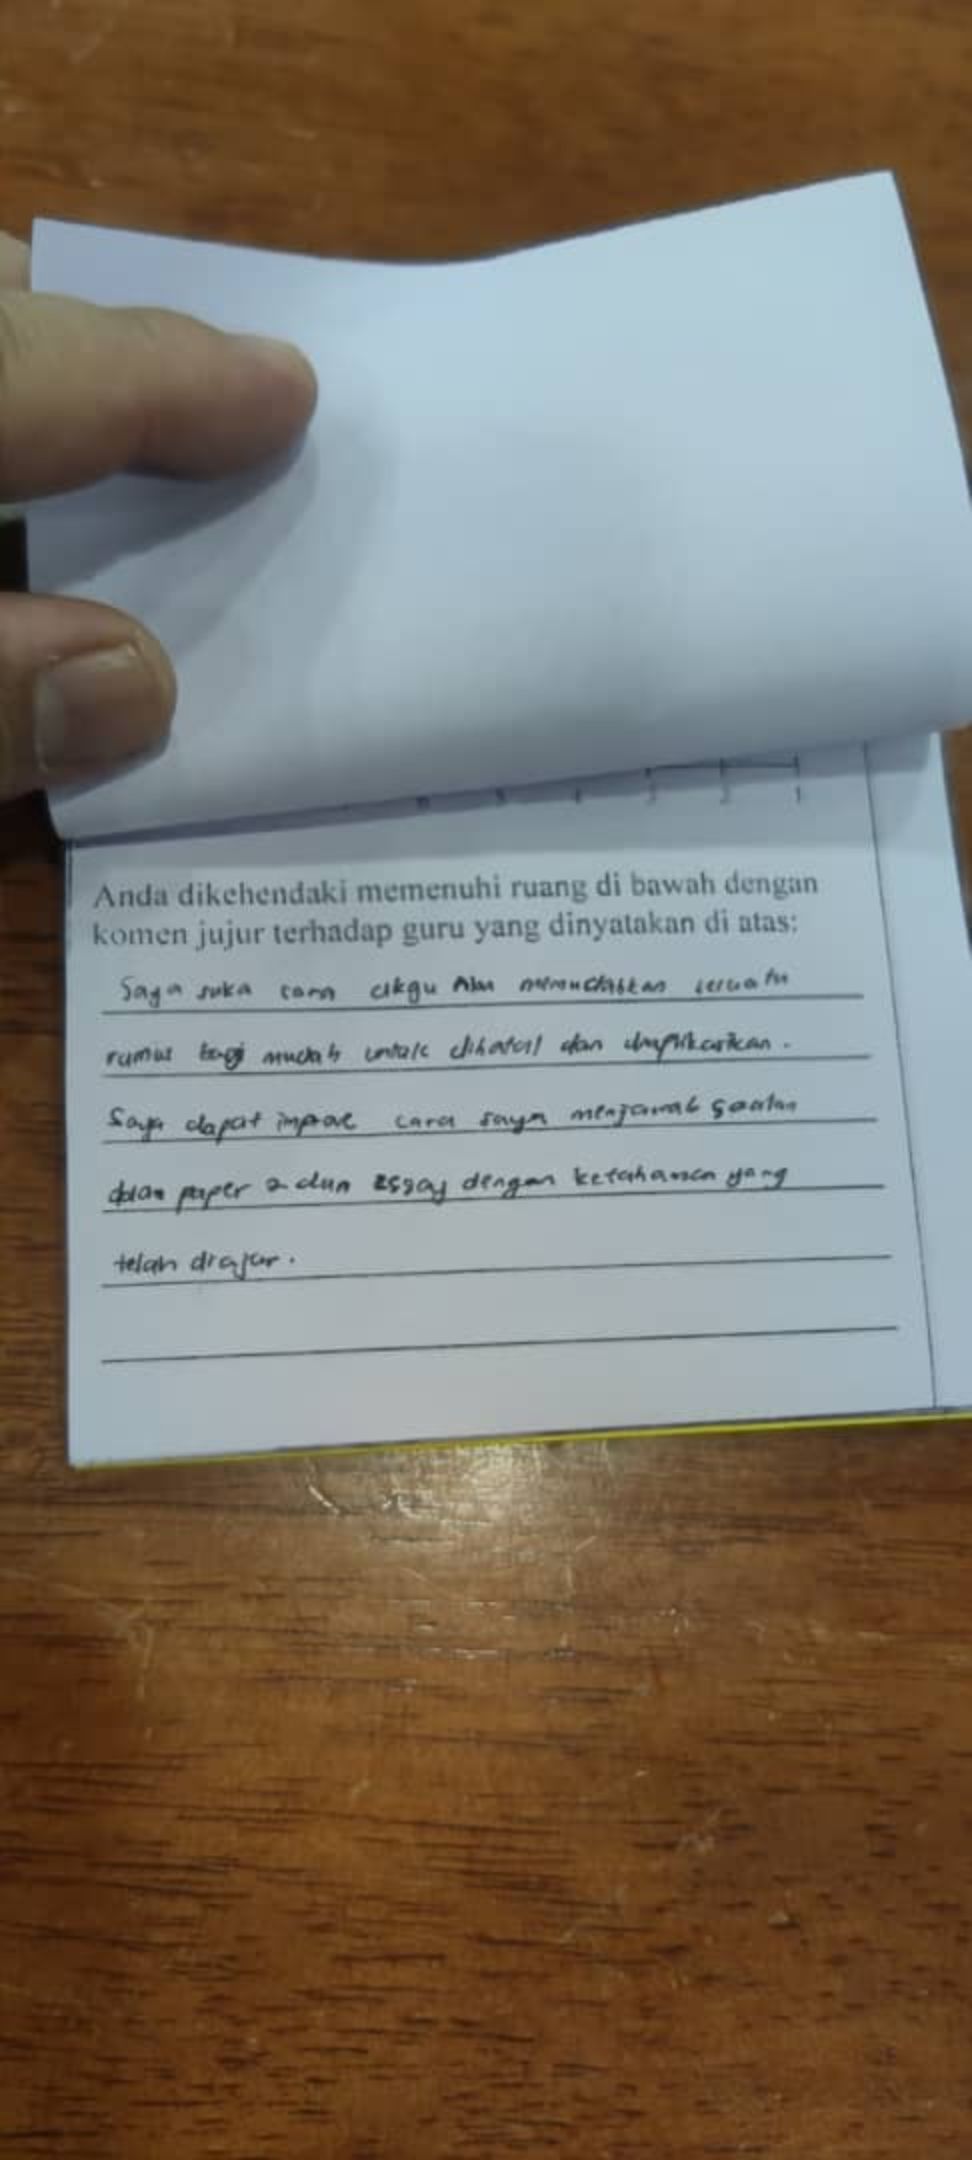 Anda dikehendaki memenuhi ruang di bawah dengan
komen jujur terhadap guru yang dinyatakan di atas:
Saya suka cara cikgu memudahkan sesuatu
rumus bagi mudah untuk dihafal dan diaplikasikan.
Saya dapat improve cara saya menjawab soalan
dalam paper 2 dan essay dengan ketahanan yang
telah diajar.